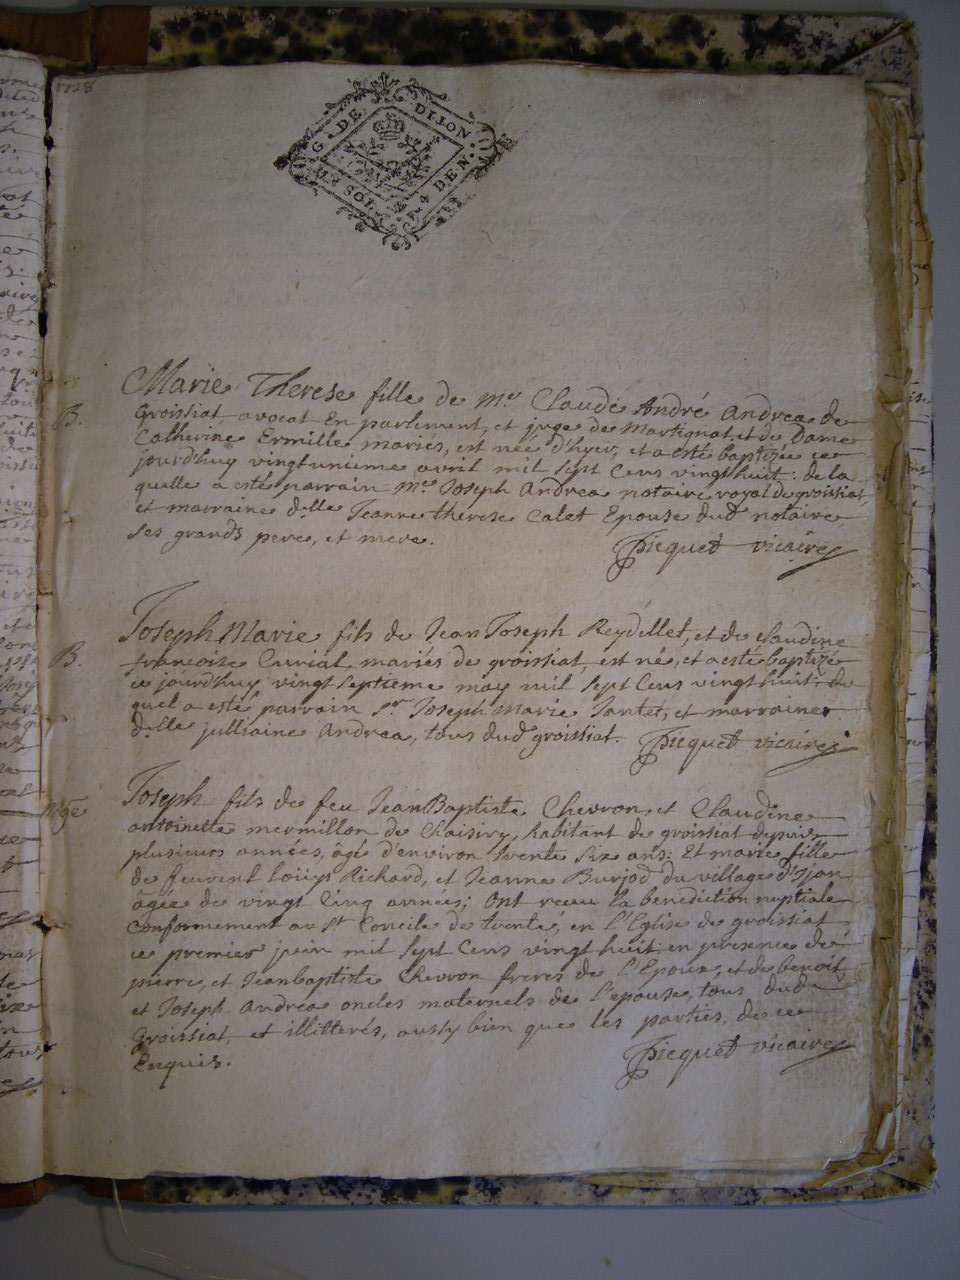 1728
G. DE DIJON
SOL 4 DEN.
Marie Therese fille de Mr Claude André Andrea de
B. Groissiat avocat En parlement, et juge de Martignat, et de Dame
Catherine Ermille mariés, est née d'hyer, et a esté baptizée ce
jourd'huy vingtunieme avril mil sept Cens vingt huit: de la
quelle a esté parrain Mre Joseph Andrea notaire royal de groissiat,
et marraine dlle Jeanne therese Calet Epouse dud notaire
ses grands pere, et mere. Picquet vicaire
Joseph Marie fils de Jean Joseph Reydellet, et de claudine
B. francoise Curial mariés de groissiat, est né, et a esté baptizé
ce jourd'huy vingt septieme may mil sept Cens vingt huit: du
quel a esté parrain sr Joseph Marie Jantet, et marraine
dlle julliaine Andrea, tous dud groissiat. Picquet vicaire
Mge Joseph fils de feu Jean Baptiste Chevron, et Claudine
antoinette mermillon de Choisiry, habitant de groissiat depuis
plusieurs années, âgé d'environ trente six ans: Et marie fille
de feuvent loüys Richard, et Jeanne Burjod du village d'Ijan
âgée de vingt Cinq années; Ont receu la benediction nuptiale
conformement au St Concile de trente, en l'Eglise de groissiat
ce premier juin mil sept Cens vingt huit en presence de
pierre, et Jeanbaptiste Chevron freres de l'Epoux, et de benoit,
et Joseph Andrea oncles maternels de l'epouse, tous dud
Groissiat, et illitterés, aussy bien que les parties, de ce
Enquis. Picquet vicaire